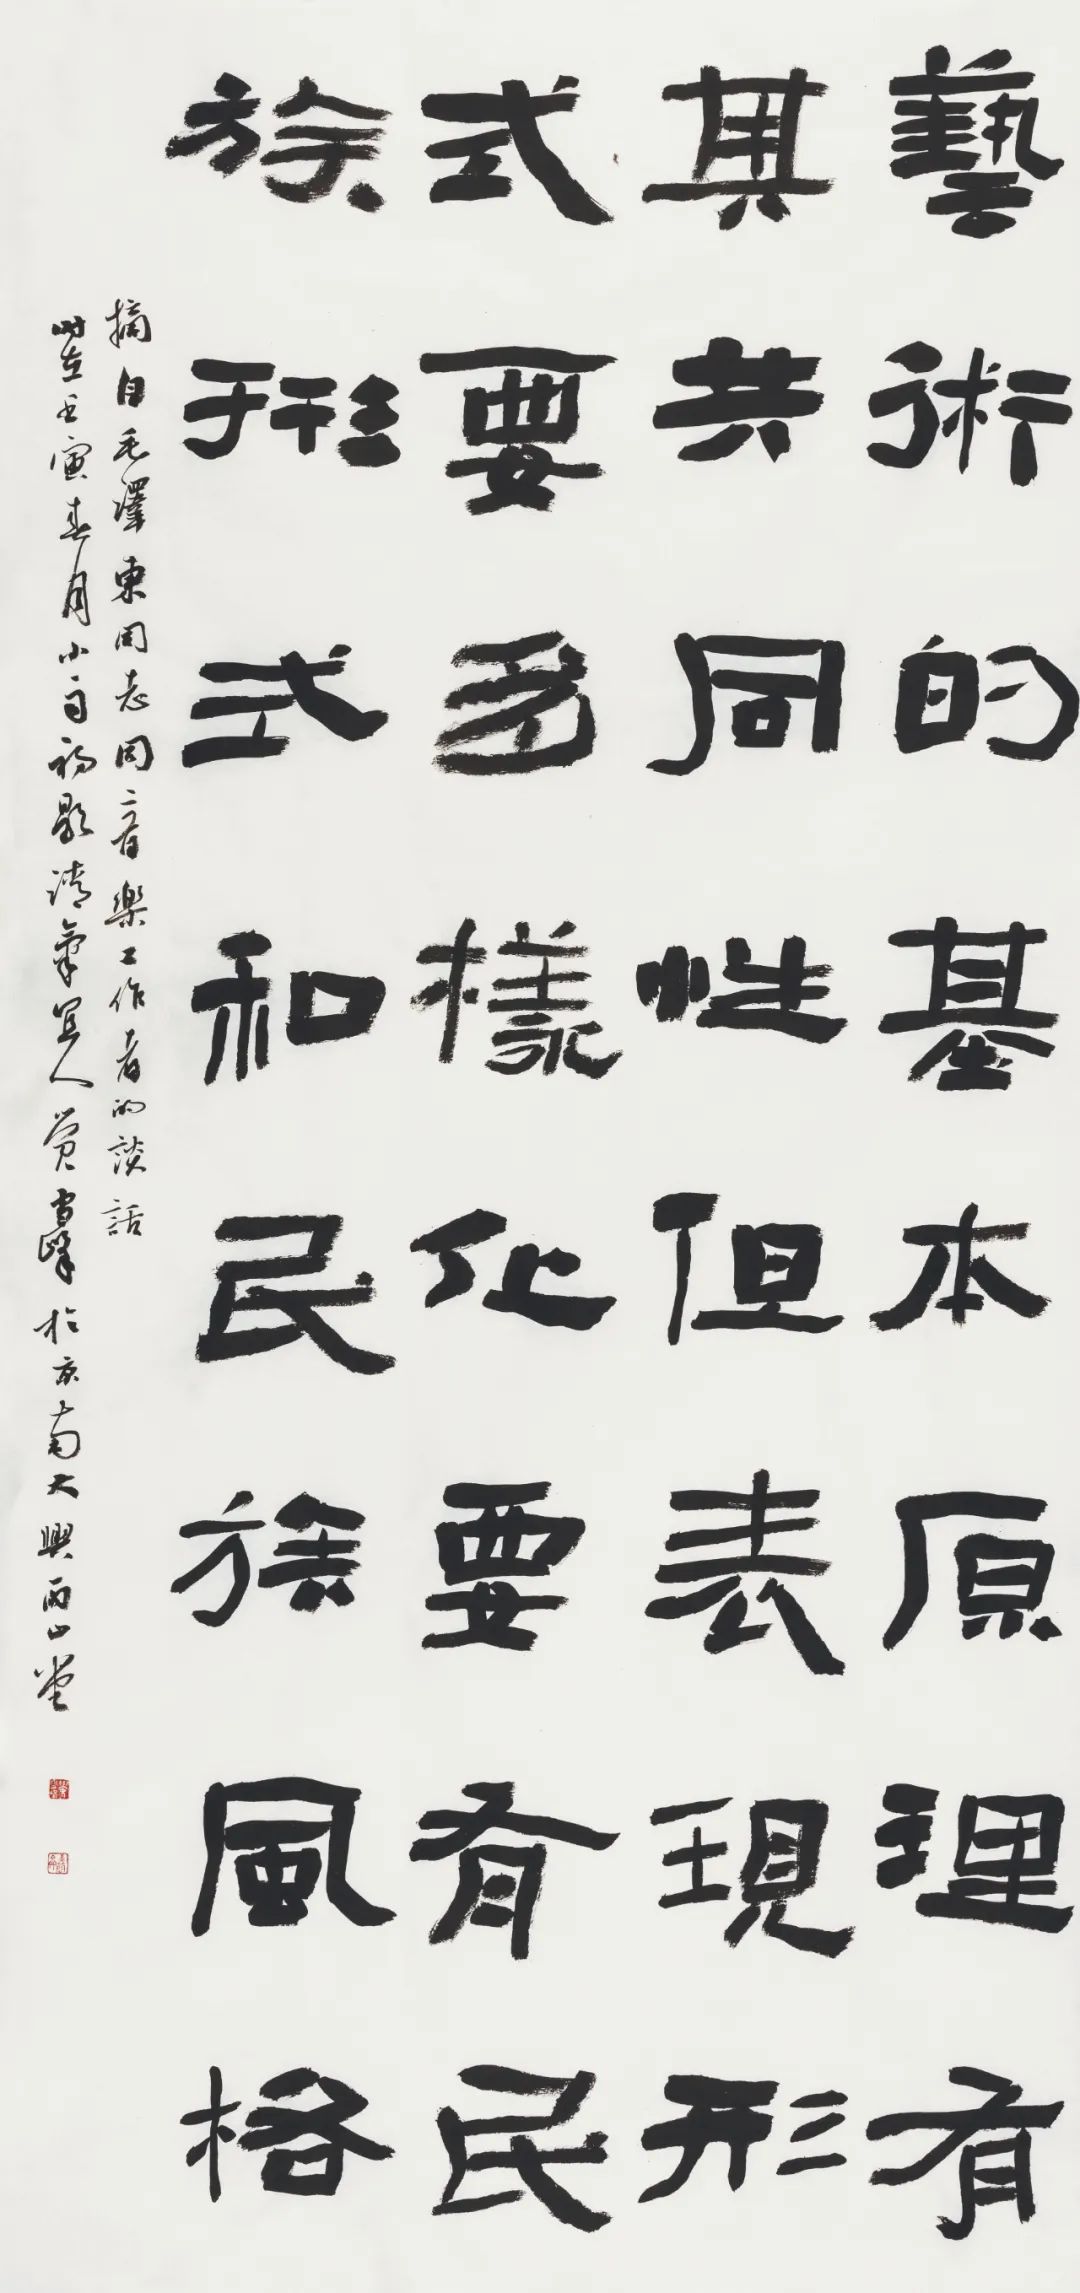 藝術的基本原理有
其共同性但表現形
式要多樣化要有民
族形式和民族風格
摘自毛澤東同志同音樂工作者的談話
時在壬寅春月小雨初歇清氣宜人黃嘗擧於京南大興丙山堂